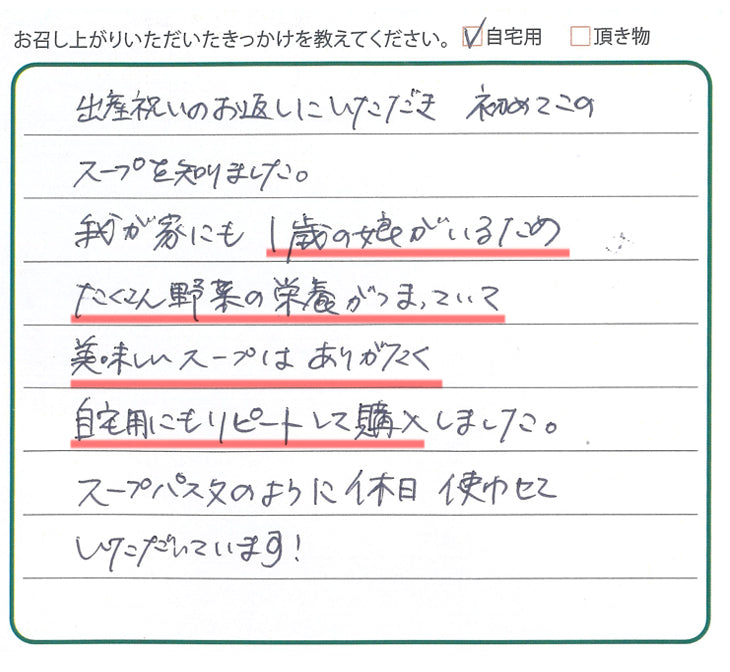 お召し上がりいただいたきっかけを教えてください。 ☑自宅用 □頂き物
出産祝いのお返しにいただき 初めてこの
スープを知りました。
我が家にも 1歳の娘がいるため
たくさん野菜の栄養がつまっていて
美味しいスープは ありがたく
自宅用にもリピートして購入しました。
スープパスタのように休日 使わせて
いただいています!